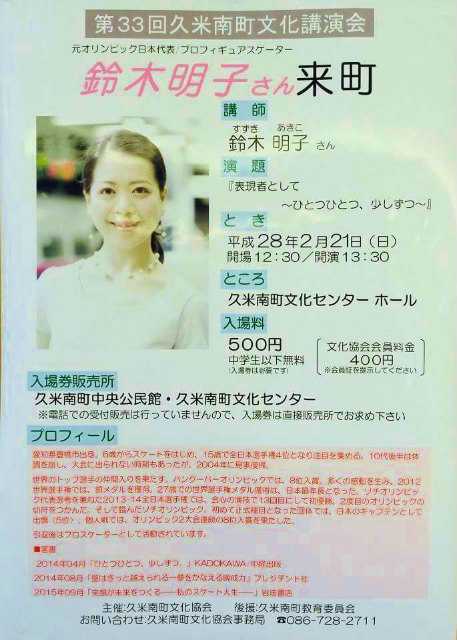 第33回久米南町文化講演会
元オリンピック日本代表/プロフィギュアスケーター
鈴木明子さん来町
講師
すずき あきこ
鈴木 明子 さん
演題
『表現者として
～ひとつひとつ、少しずつ～』
とき
平成28年2月21日(日)
開場12:30／開演13:30
ところ
久米南町文化センター ホール
入場料
500円
中学生以下無料
(入場券は必要です)
文化協会会員料金
400円
※会員証を提示してください
入場券販売所
久米南町中央公民館・久米南町文化センター
※電話での受付販売は行っていませんので、入場券は直接販売所でお求め下さい
プロフィール
愛知県豊橋市出身。6歳からスケートをはじめ、15歳で全日本選手権4位となり注目を集める。10代後半は体
調を崩し、大会に出られない時期もあったが、2004年に見事復帰。
世界のトップ選手の仲間入りを果たす。バンクーバーオリンピックでは、8位入賞。多くの感動を生み、2012
世界選手権では、銅メダルを獲得。27歳での世界選手権メダル獲得は、日本最年長となった。ソチオリンピッ
ク代表選考を兼ねた2013-14全日本選手権では、会心の演技で13回目にして初優勝。2度目のオリンピックの
切符をつかんだ。そして臨んだソチオリンピック、初めて正式種目となった団体では、日本のキャプテンとして
出場(5位)、個人戦では、オリンピック2大会連続の8位入賞を果たした。
引退後はプロスケーターとして活動されています。
■著書
2014年04月「ひとつひとつ、少しずつ。」KADOKAWA/中経出版
2014年08月「壁はきっと越えられる―夢をかなえる晩成力」プレジデント社
2015年09月「笑顔が未来をつくる――私のスケート人生――」岩崎書店
主催:久米南町文化協会 後援:久米南町教育委員会
お問い合わせ:久米南町文化協会事務局 ☎086-728-2711